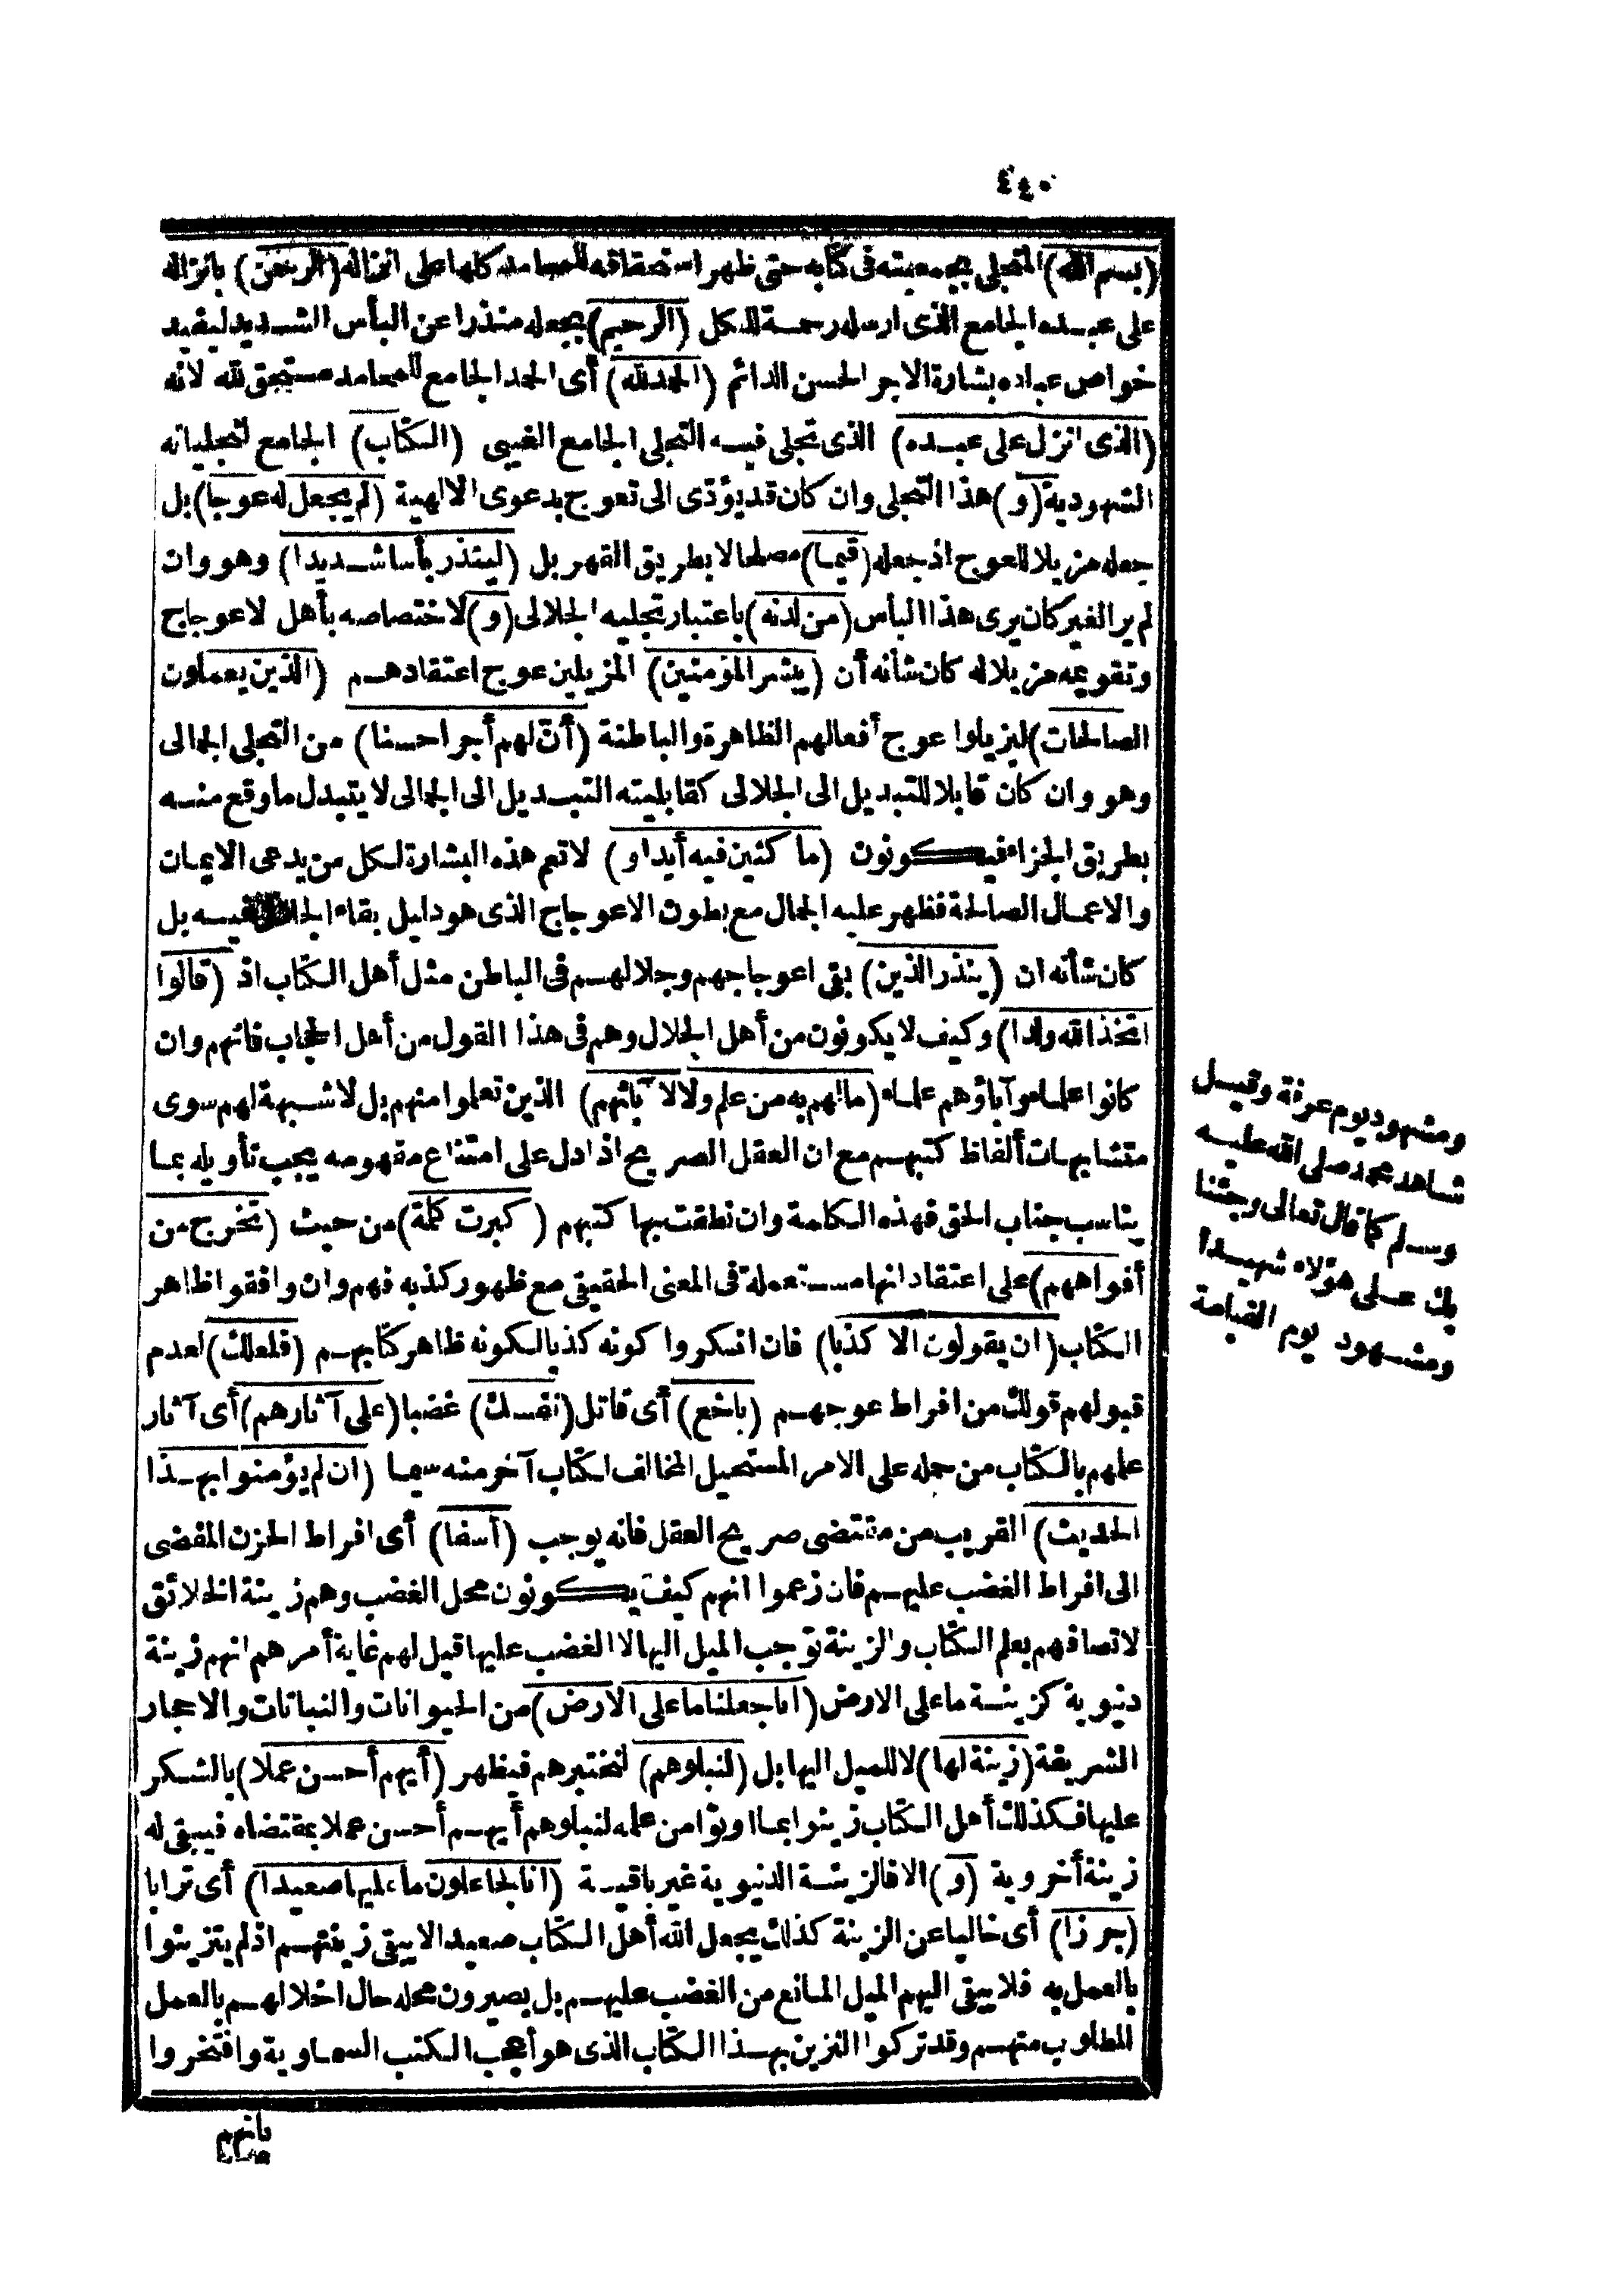 ٤٤٠
(بسم الله) المتجلى بجمعيته فى كتابه حتى ظهر استحقاقه للمحامد كلها على انزاله (الرحمن) بانزاله
على عبده الجامع الذى ارسله رحمة للكل (الرحيم) بجعله منذرا عن البأس الشديد ليفيد
خواص عباده بشارة الاجر الحسن الدائم (الحمد لله) أى الحمد الجامع للمحامد مستحق لله لانه
(الذى انزل على عبده) الذى تجلى فيه التجلى الجامع الغيبى (الكتاب) الجامع لتجلياته
الشهودية (و) هذا التجلى وان كان قد يؤدى الى تعوج بدعوى الالهية (لم يجعل له عوجا) بل
جعله مزيلا للعوج اذ جعله (قيما) مصلحا لا بطريق القهر بل (لينذر بأسا شديدا) وهو وان
لم ير الغير كان يرى هذا البأس (من لدنه) باعتبار تجليه الجلالى (و) لاختصاصه بأهل لاعوجاج
وتقويمه مزيلا له كان شأنه أن (يبشر المؤمنين) المزيلين عوج اعتقادهم (الذين يعملون
الصالحات) ليزيلوا عوج أفعالهم الظاهرة والباطنة (أن لهم أجرا حسنا) من التجلى الجمالى
وهو وان كان قابلا للتبديل الى الجلالى كقابليته التبديل الى الجمالى لا يتبدل ما وقع منه
بطريق الجزاء فيكونون (ماكثين فيه أبدا و) لا تعم هذه البشارة لكل من يدعى الايمان
والاعمال الصالحة فظهر عليه الجمال مع بطون الاعوجاج الذى هو دليل بقاء فيه بل
كان شأنه ان (ينذر الذين) بقى اعوجاجهم وجلالهم فى الباطن مثل أهل الكتاب اذ (قالوا
اتخذ الله ولدا) وكيف لا يكونون من أهل الجلال وهم فى هذا القول من أهل الحجاب فانهم وان
كانوا علماء وآباؤهم علماء (ما لهم به من علم ولا لآبائهم) الذين تعلموا منهم بل لا شبهة لهم سوى
متشابهات ألفاظ كتبهم مع ان العقل الصريح اذا دل على امتناع مفهومه يجب تأويله بما
يناسب جناب الحق فهذه الكلمة وان نطقت بها كتبهم (كبرت كلمة) من حيث (تخرج من
أفواههم) على اعتقاد انها مستعملة فى المعنى الحقيقى مع ظهور كذبه فهم وان وافقوا ظاهر
الكتاب (ان يقولون الا كذبا) فان انكروا كونه كذبا لكونه ظاهر كتابهم (فلعلك) لعدم
قبولهم قولك من افراط عوجهم (باخع) أى قاتل (نفسك) غضبا (على آثارهم) أى آثار
علمهم بالكتاب من حمله على الامر المستحيل المخالف لكتاب آخر منه سيما (ان لم يؤمنوا بهذا
الحديث) القريب من مقتضى صريح العقل فانه يوجب (أسفا) أى افراط الحزن المفضى
الى افراط الغضب عليهم فان زعموا انهم كيف يكونون محل الغضب وهم زينة الخلائق
لاتصافهم بعلم الكتاب والزينة توجب الميل اليها لا الغضب عليها قيل لهم غاية أمرهم انهم زينة
دنيوية كزينة ما على الارض (انا جعلنا ما على الارض) من الحيوانات والنباتات والاحجار
الشريفة (زينة لها) لا للميل اليها بل (لنبلوهم) لنختبرهم فيظهر (أيهم أحسن عملا) بالشكر
عليها فكذلك أهل الكتاب زينوا بما اوتوا من علمه لنبلوهم أيهم أحسن عملا بمقتضاه فيبقى له
زينة أخروية (و) الا فالزينة الدنيوية غير باقية (انا لجاعلون ما عليها صعيدا) أى ترابا
(جرزا) أى خاليا عن الزينة كذلك يجعل الله أهل الكتاب صعيدا لا يبقى زينتهم اذ لم يتزينوا
بالعمل به فلا يبقى اليهم الميل المانع من الغضب عليهم بل يصيرون محله حال اخلالهم بالعمل
المطلوب منهم وقد تركوا التزين بهذا الكتاب الذى هو أعجب الكتب السماوية وافتخروا
بانهم
ومشهود يوم عرفة وقيل
شاهد محمد صلى الله عليه
وسلم كما قال تعالى وجئنا
بك على هؤلاء شهيدا
ومشهود يوم القيامة